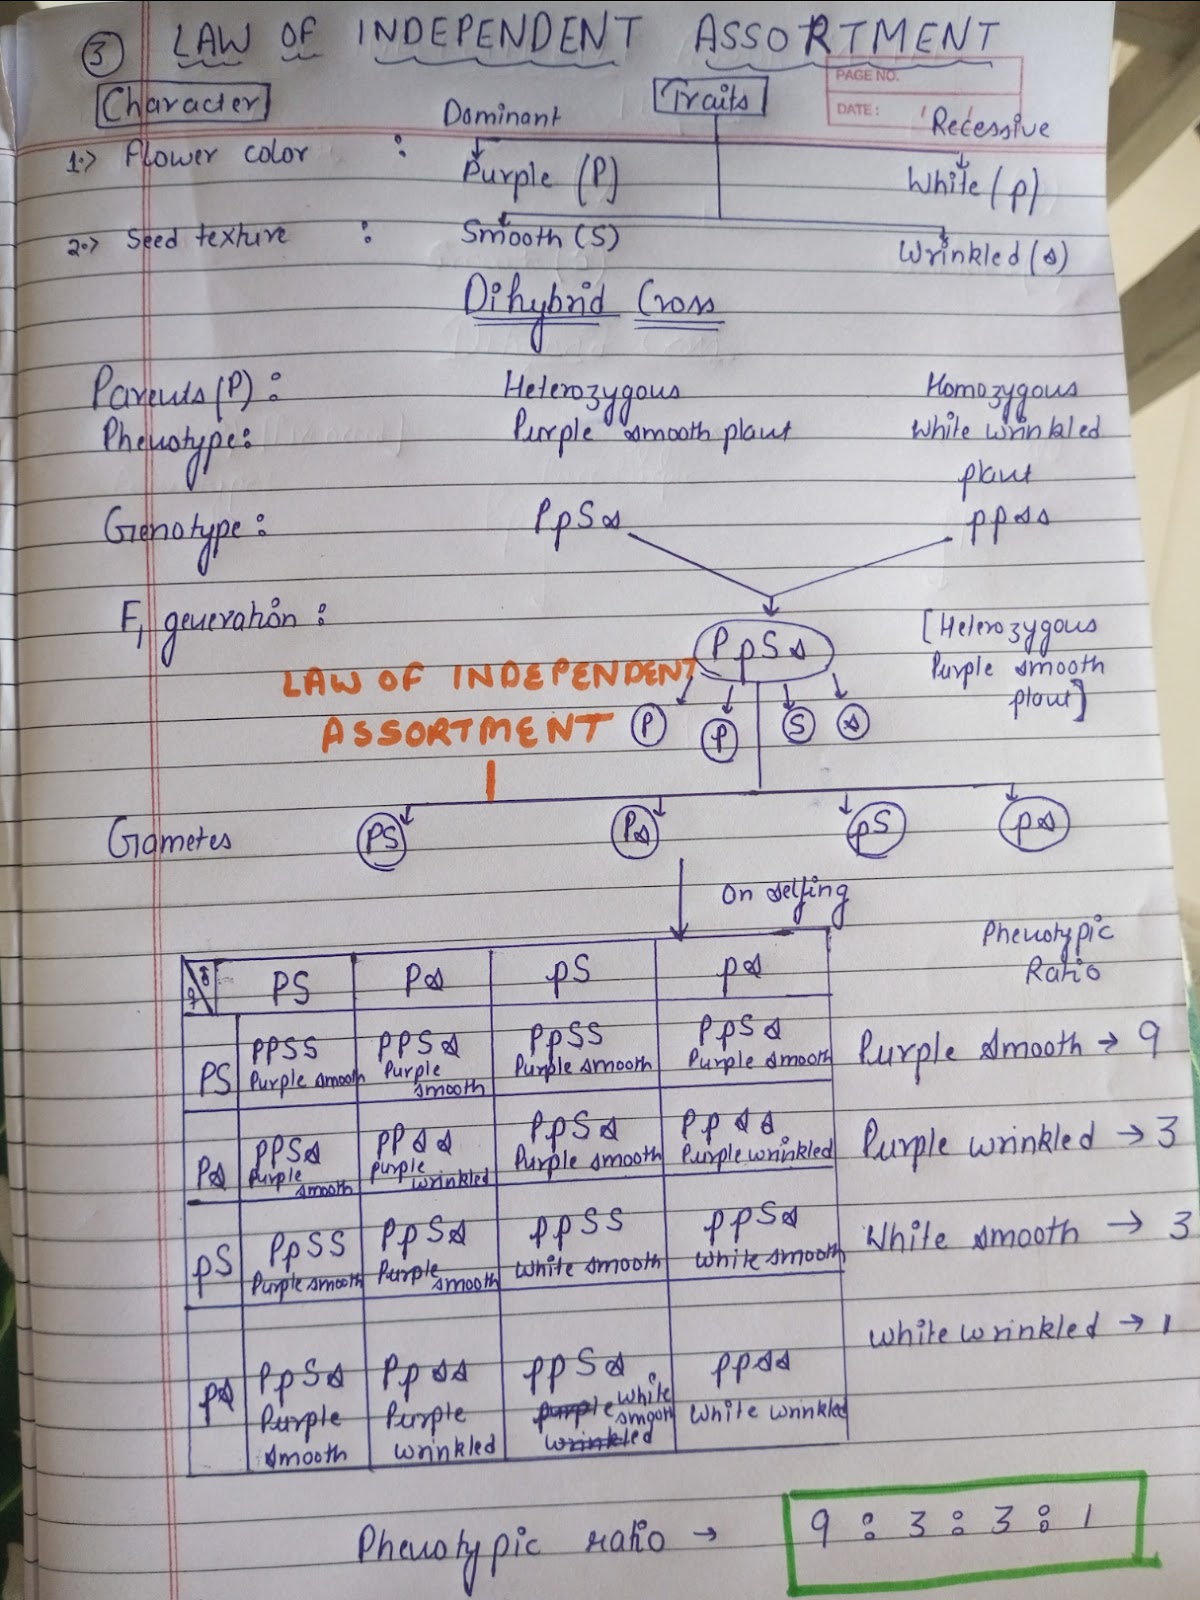 ③ LAW OF INDEPENDENT ASSORTMENT
PAGE NO.
DATE:
Character Traits
Dominant Recessive
1.> Flower color : Purple (P) White (p)
2.> Seed texture : Smooth (S) Wrinkled (s)
Dihybrid Cross
Parents (P) : Heterozygous Homozygous
Phenotype: Purple smooth plant White wrinkled
plant
Genotype : PpSs ppss
F1 generation : PpSs [Heterozygous
Purple smooth
plant]
LAW OF INDEPENDENT
ASSORTMENT P p S s
Gametes PS Ps pS ps
On selfing
Phenotypic
Ratio
♀ ♂ PS Ps pS ps
PS PPSS PPSs PpSS PpSs
Purple smooth Purple smooth Purple smooth Purple smooth
Purple smooth → 9
Ps PPSs PPss PpSs Ppss
Purple smooth Purple wrinkled Purple smooth Purple wrinkled
Purple wrinkled → 3
pS PpSS PpSs ppSS ppSs
Purple smooth Purple smooth White smooth White smooth
White smooth → 3
White wrinkled → 1
ps PpSs Ppss ppSs ppss
Purple smooth Purple wrinkled purple white smooth wrinkled White wrinkled
Phenotypic ratio → 9 : 3 : 3 : 1